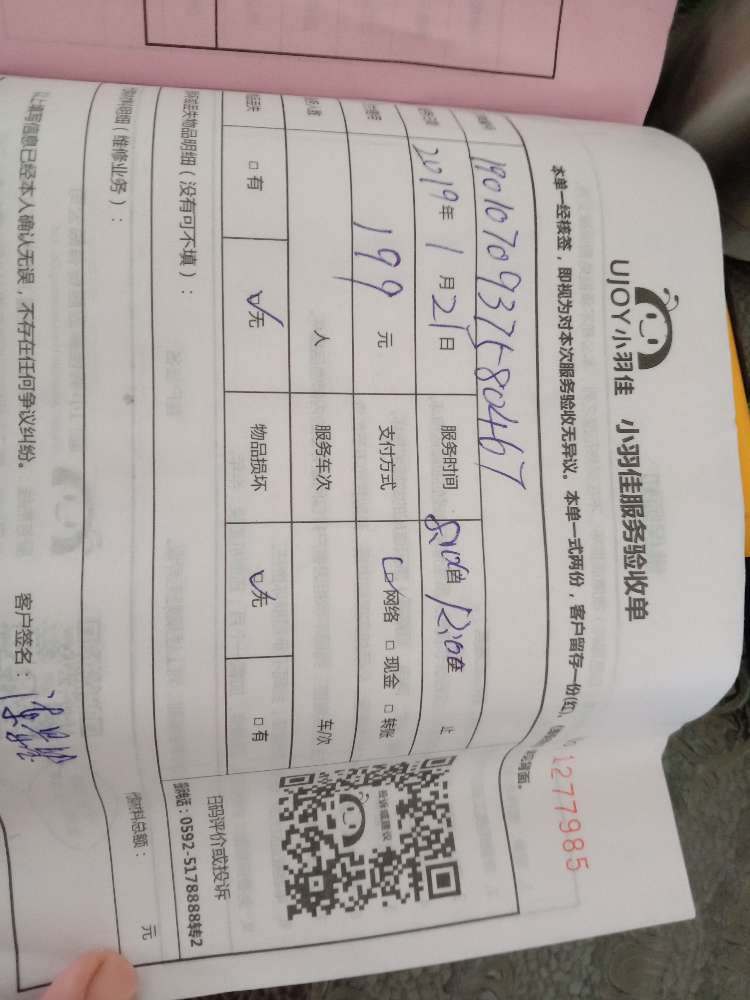 UJOY小羽佳 小羽佳服务验收单
1277985
本单一经核签，即视为对本次服务验收无异议。本单一式两份，客户留存一份(红),
见背面。
1901070937580467
2019年1月21日 服务时间 8:10自 12:10至 止
199元 支付方式 ☑网络 □现金 □转账
人 服务车次 车/次
□有 ☑无 物品损坏 ☑无 □有
投诉或建议
扫码评价或投诉
电话：0592-5178888转2
物品明细（没有可不填）：
明细（维修业务）：
材料总额： 元
以上填写信息已经本人确认无误，不存在任何争议纠纷。 客户签名：